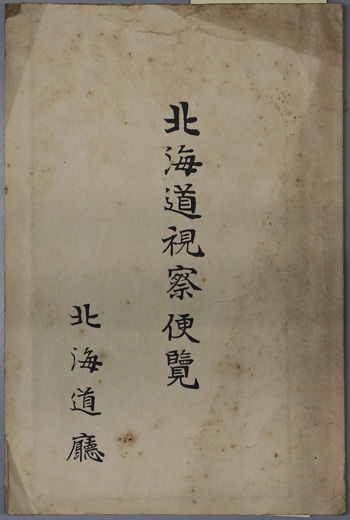 北海道視察便覽
北海道廳